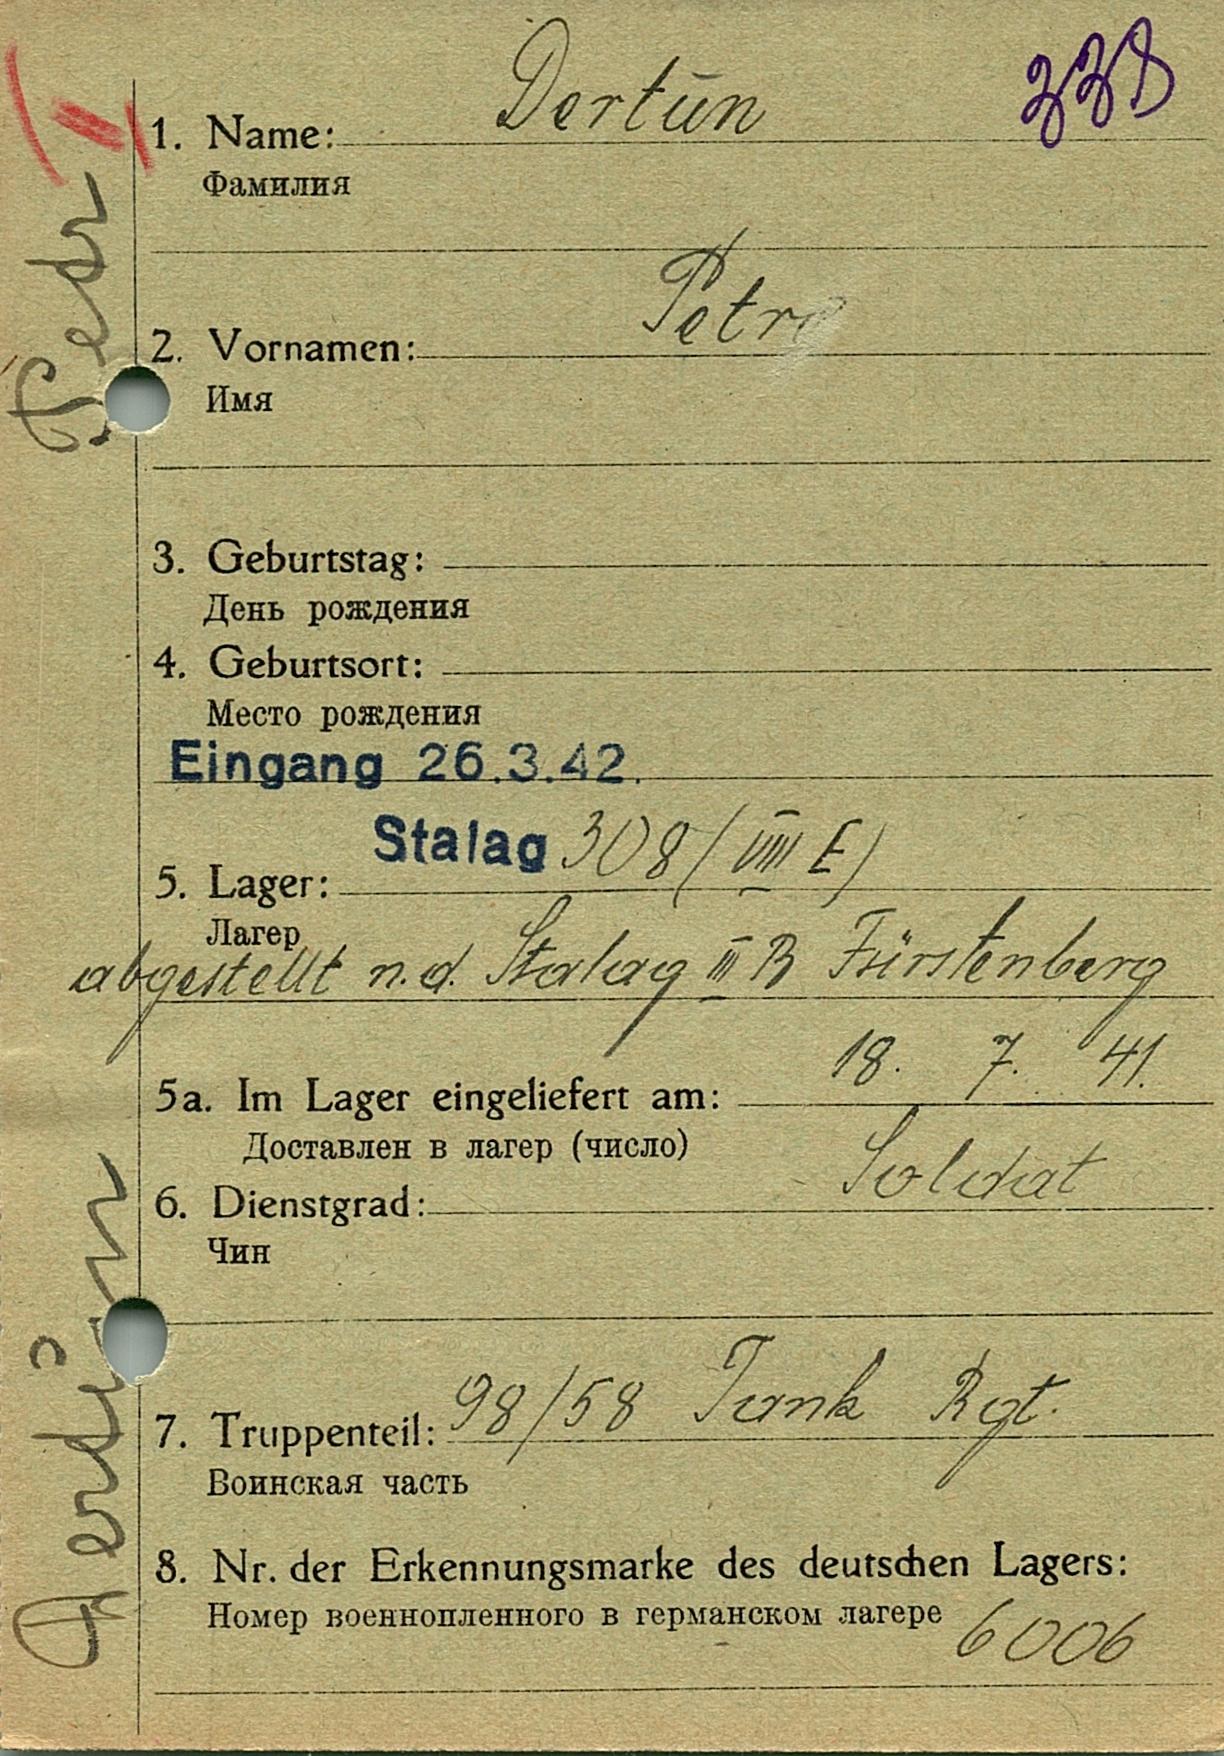 338
1. Name: Dertün
Фамилия
2. Vornamen: Petro
Имя
3. Geburtstag:
День рождения
4. Geburtsort:
Место рождения
Eingang 26.3.42.
Stalag 308 (VIII E)
5. Lager:
Лагер
abgestellt n.d. Stalag III B Fürstenberg
5a. Im Lager eingeliefert am: 18. 7. 41.
Доставлен в лагер (число)
6. Dienstgrad: Soldat
Чин
7. Truppenteil: 98/58 Tank Rgt.
Воинская часть
8. Nr. der Erkennungsmarke des deutschen Lagers:
Номер военнопленного в германском лагере 6006
Dertün Petr